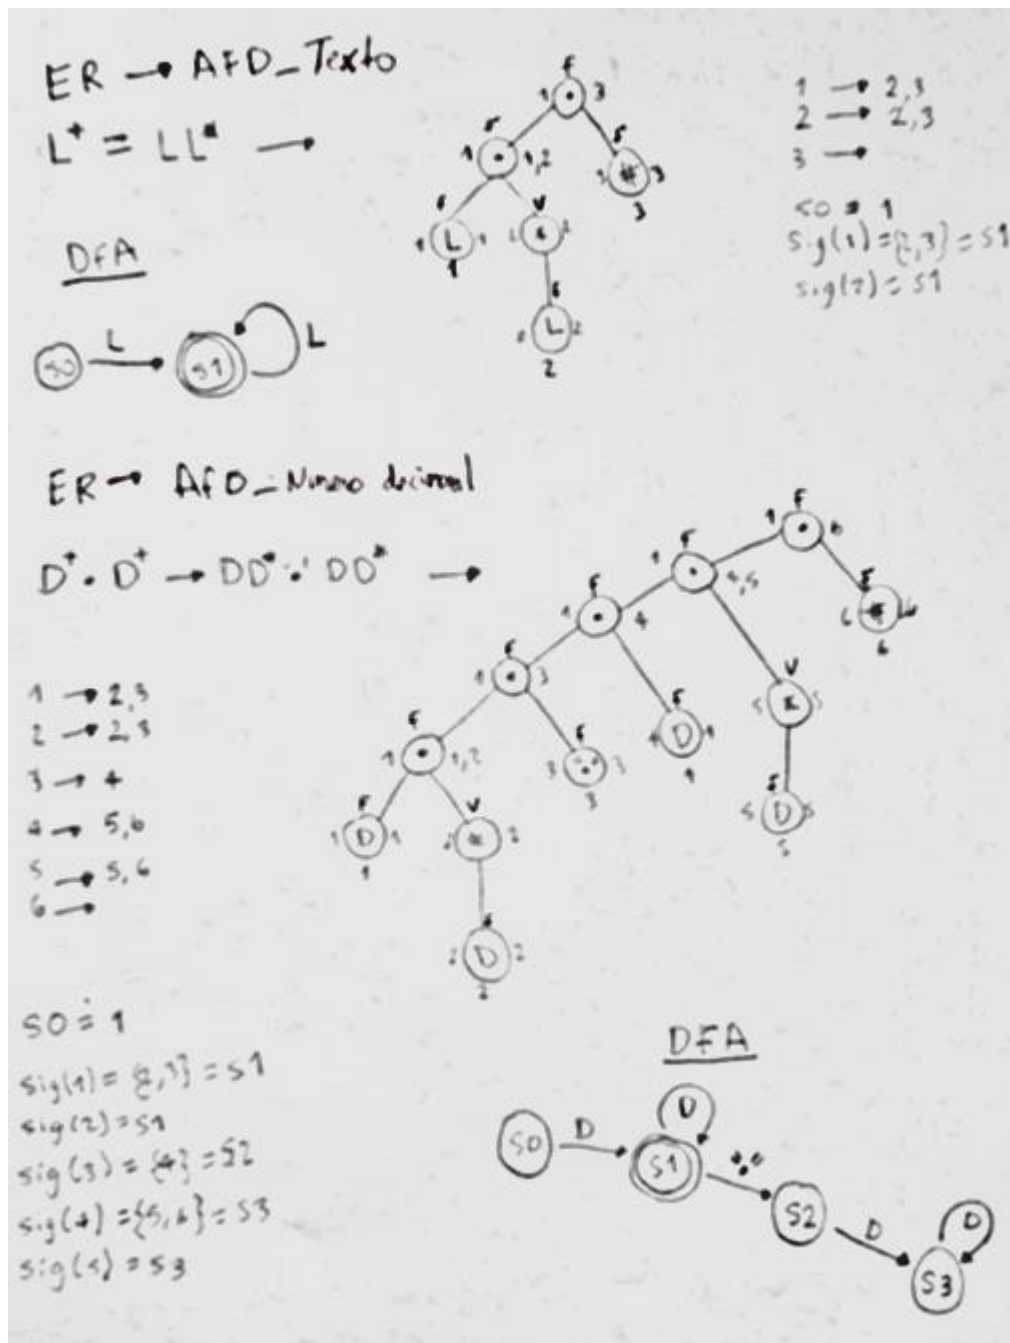 ER → AFD_Texto
L⁺ = LL* →
F
1 • 3
F
1 • 1,2
F
3 # 3
3
F
1 L 1
1
V
2 * 2
F
2 L 2
2
1 → 2,3
2 → 2,3
3 →
S0 = 1
sig(1) = {2,3} = S1
sig(2) = S1
DFA
S0 L S1 L
ER → AFD_Numero decimal
D⁺ . D⁺ → DD* "." DD* →
F
1 • 6
F
1 • 4,5
F
6 # 6
6
F
1 • 4
F
1 • 3
V
5 * 5
F
4 D 4
F
1 • 1,2
F
3 "." 3
3
F
5 D 5
5
F
1 D 1
1
V
2 * 2
F
2 D 2
2
1 → 2,3
2 → 2,3
3 → 4
4 → 5,6
5 → 5,6
6 →
S0 = 1
sig(1) = {2,3} = S1
sig(2) = S1
sig(3) = {4} = S2
sig(4) = {5,6} = S3
sig(5) = S3
DFA
S0 D S1 D "." S2 D S3 D